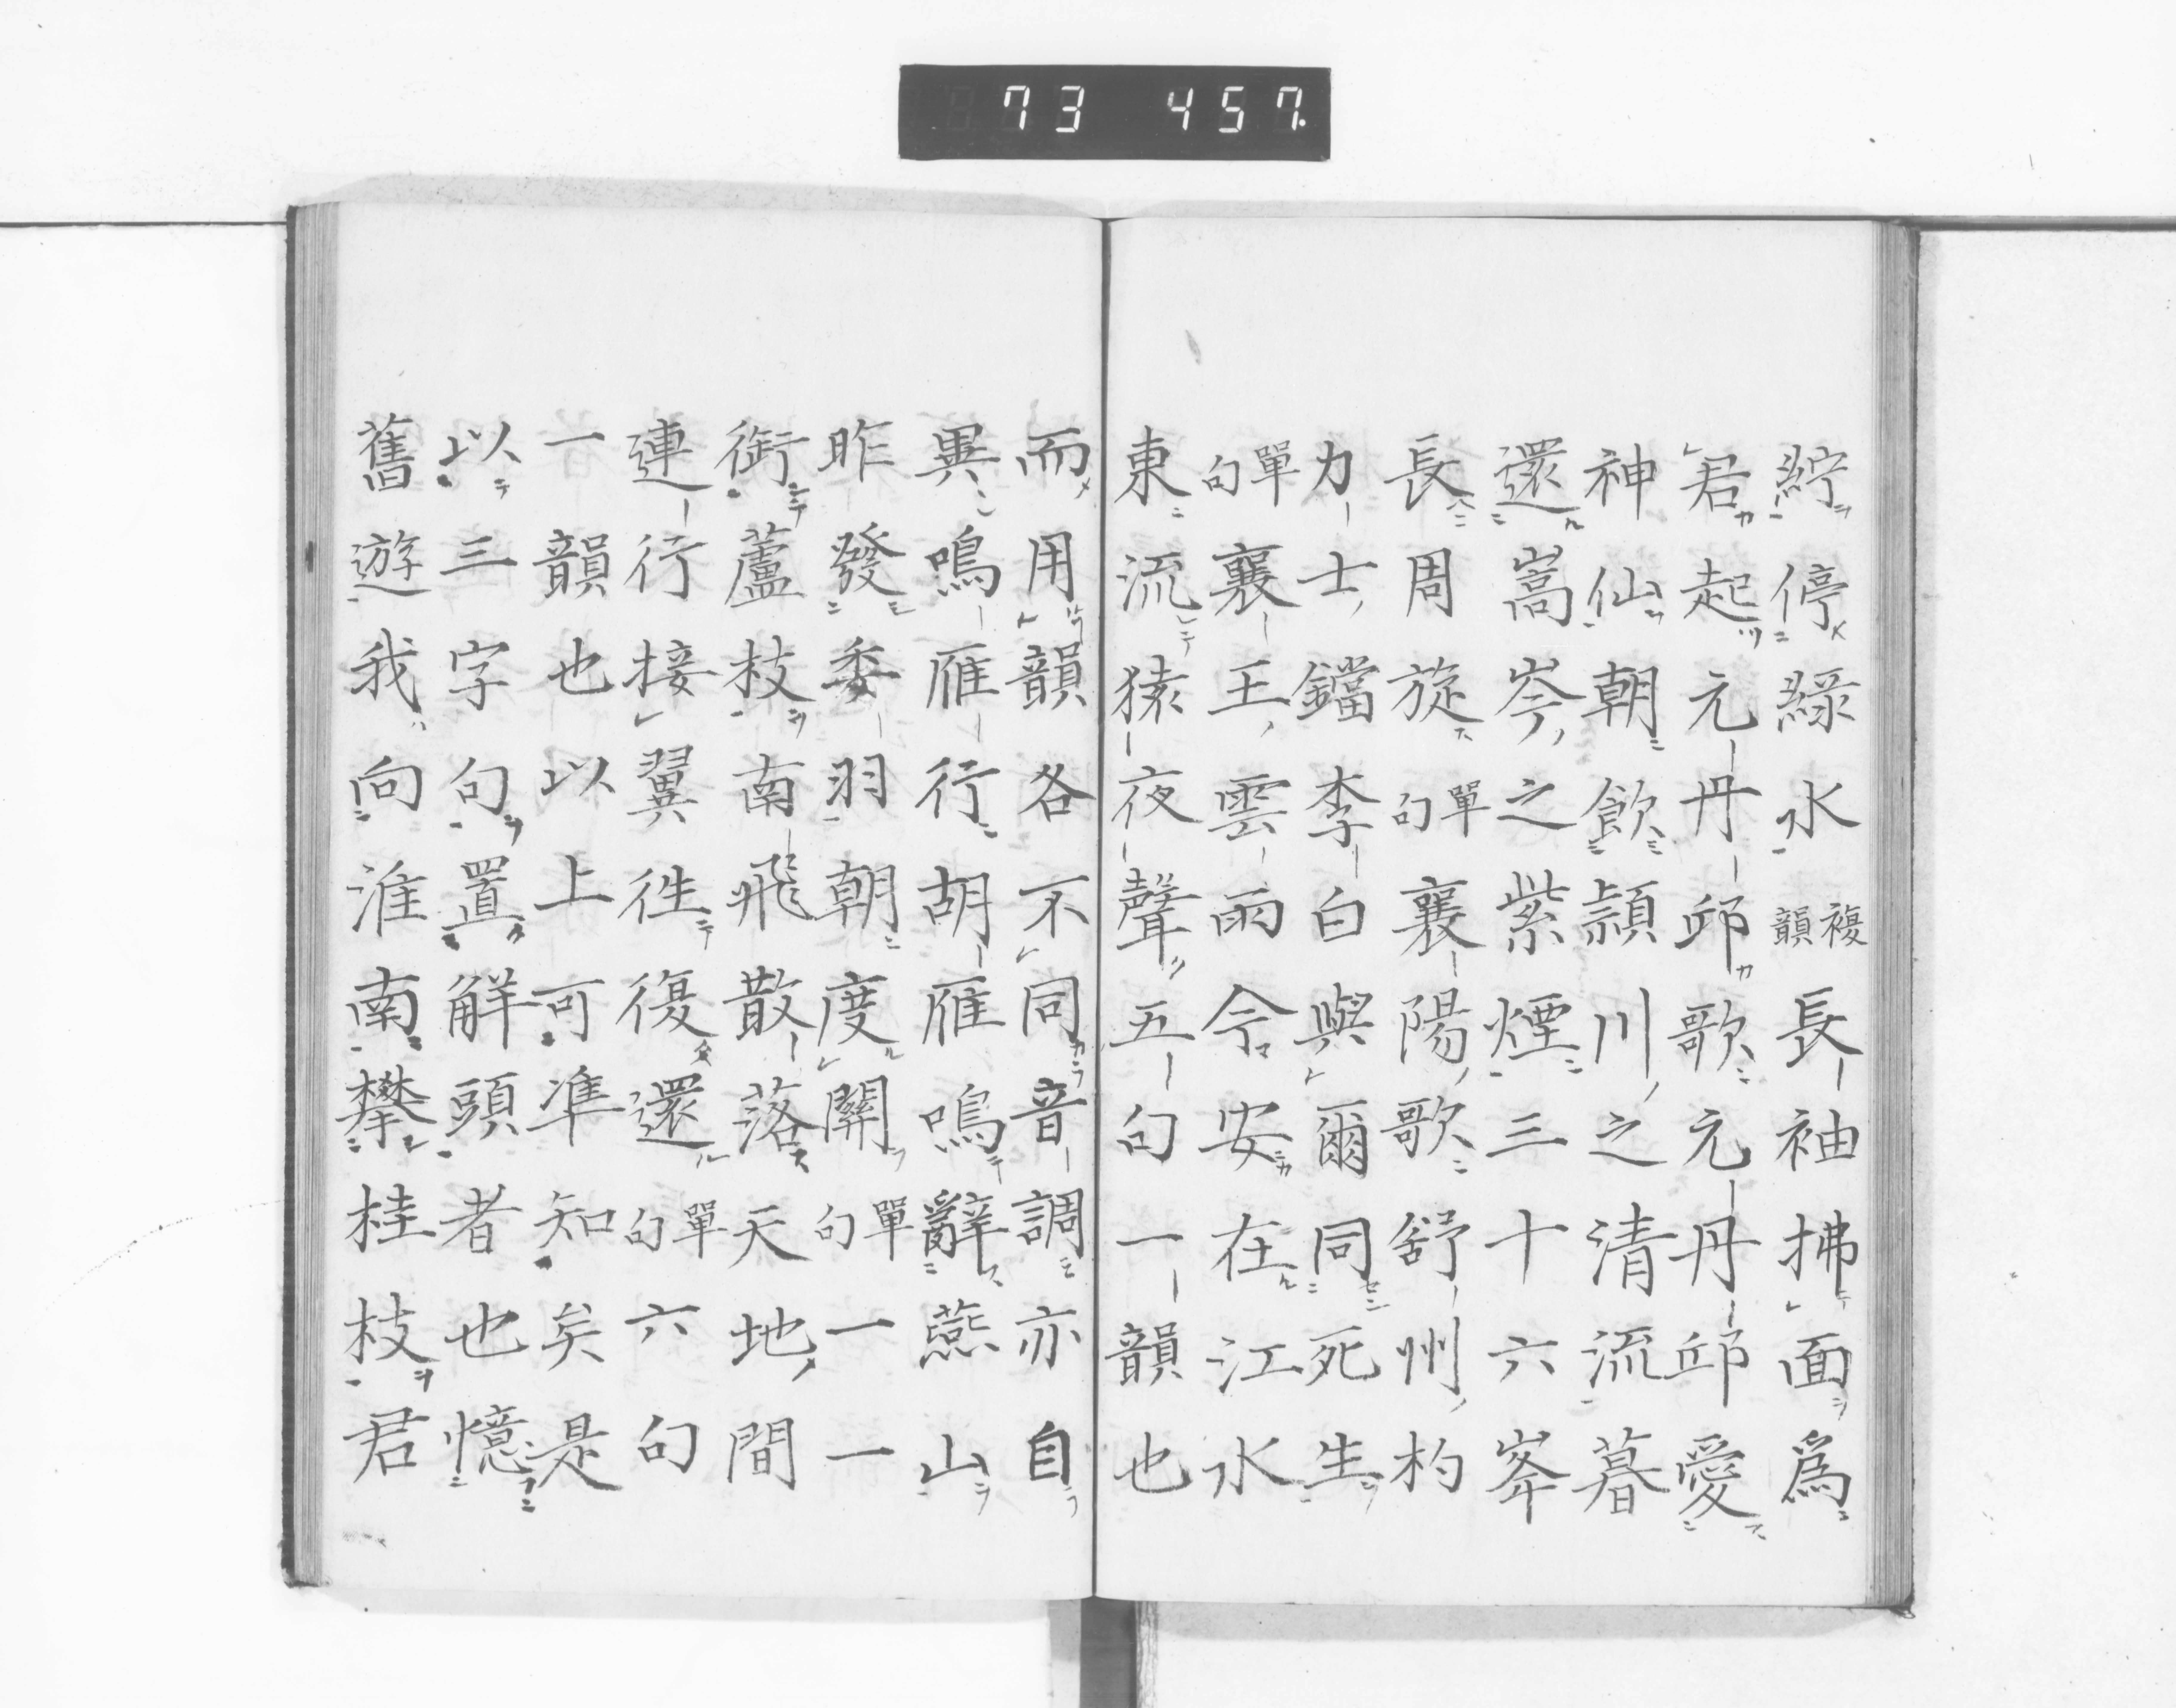 73 457.
紵停綠水複韻長袖拂面爲
君起元丹邱歌元丹邱愛
神仙朝飲潁川之清流暮
還嵩岑之紫煙三十六峯
長周旋單句襄陽歌舒州杓
力士鐺李白與爾同死生
單句襄王雲雨今安在江水
東流猿夜聲五句一韻也
而用韻各不同音調亦自
異鳴雁行胡雁鳴辭燕山
昨發委羽朝度關單句一一
銜蘆枝南飛散落天地間
連行接翼往復還單句六句
一韻也以上可準知矣是
以三字句置觧頭者也憶
舊遊我向淮南攀桂枝君